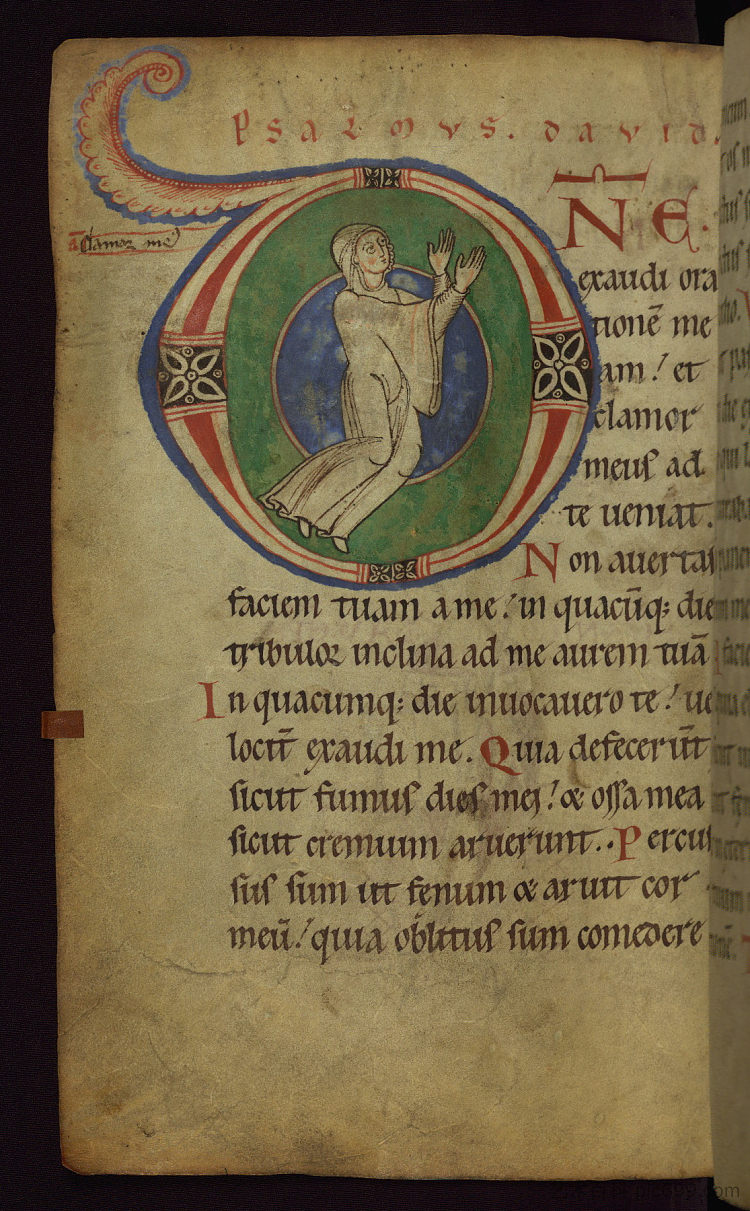 PSALMVS. DAVID.
A Clamor me
D N̄E.
exaudi ora
tionē me
am! et
clamor
meus ad
te ueniat.
Non auertas
faciem tuam a me! in quacūq; die
tribulor inclina ad me aurem tuā
In quacumq; die inuocauero te! ue
locit̄ exaudi me. Quia defecerūt
sicut fumus dies mei! & ossa mea
sicut cremium aruerunt. Percus
sus sum ut fenum & aruit cor
meū! quia oblitus sum comedere